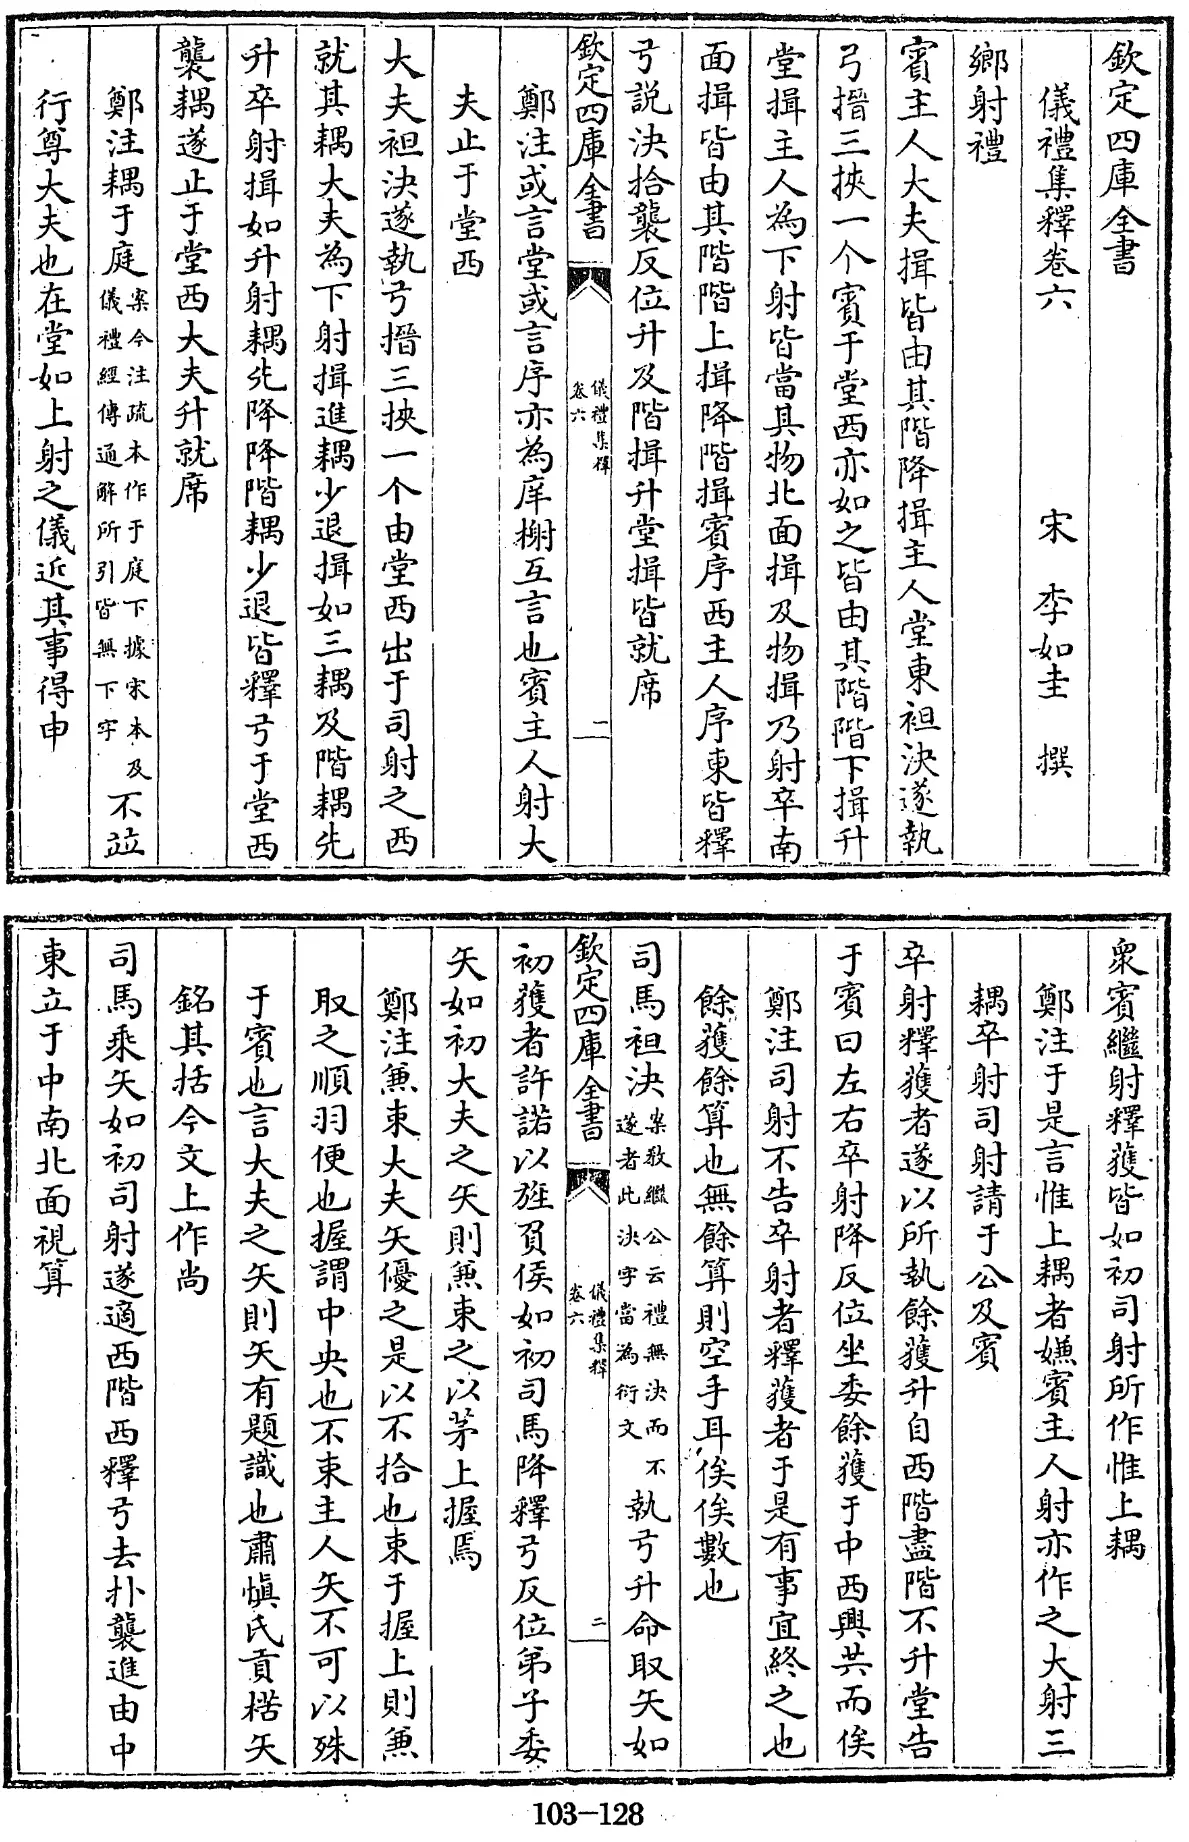 欽定四庫全書
儀禮集釋卷六　宋　李如圭　撰
鄉射禮
賓主人大夫揖皆由其階降揖主人堂東袒決遂執
弓搢三挾一个賓于堂西亦如之皆由其階階下揖升
堂揖主人為下射皆當其物北面揖及物揖乃射卒南
面揖皆由其階階上揖降階揖賓序西主人序東皆釋
弓説決拾襲反位升及階揖升堂揖皆就席
欽定四庫全書　儀禮集釋卷六　一
鄭注或言堂或言序亦為庠榭互言也賓主人射大
夫止于堂西
大夫袒決遂執弓搢三挾一个由堂西出于司射之西
就其耦大夫為下射揖進耦少退揖如三耦及階耦先
升卒射揖如升射耦先降降階耦少退皆釋弓于堂西
襲耦遂止于堂西大夫升就席
鄭注耦于庭案今注疏本作于庭下據宋本及儀禮經傳通解所引皆無下字不竝
行尊大夫也在堂如上射之儀近其事得申
衆賓繼射釋獲皆如初司射所作惟上耦
鄭注于是言惟上耦者嫌賓主人射亦作之大射三
耦卒射司射請于公及賓
卒射釋獲者遂以所執餘獲升自西階盡階不升堂告
于賓曰左右卒射降反位坐委餘獲于中西興共而俟
鄭注司射不告卒射者釋獲者于是有事宜終之也
餘獲餘算也無餘算則空手耳俟俟數也
司馬袒決案敖繼公云禮無決而不遂者此決字當為衍文執弓升命取矢如
欽定四庫全書　儀禮集釋卷六　二
初獲者許諾以旌負侯如初司馬降釋弓反位弟子委
矢如初大夫之矢則兼束之以茅上握焉
鄭注兼束大夫矢優之是以不拾也束于握上則兼
取之順羽便也握謂中央也不束主人矢不可以殊
于賓也言大夫之矢則矢有題識也肅慎氏貢楛矢
銘其括今文上作尚
司馬乘矢如初司射遂適西階西釋弓去扑襲進由中
東立于中南北面視算
103-128